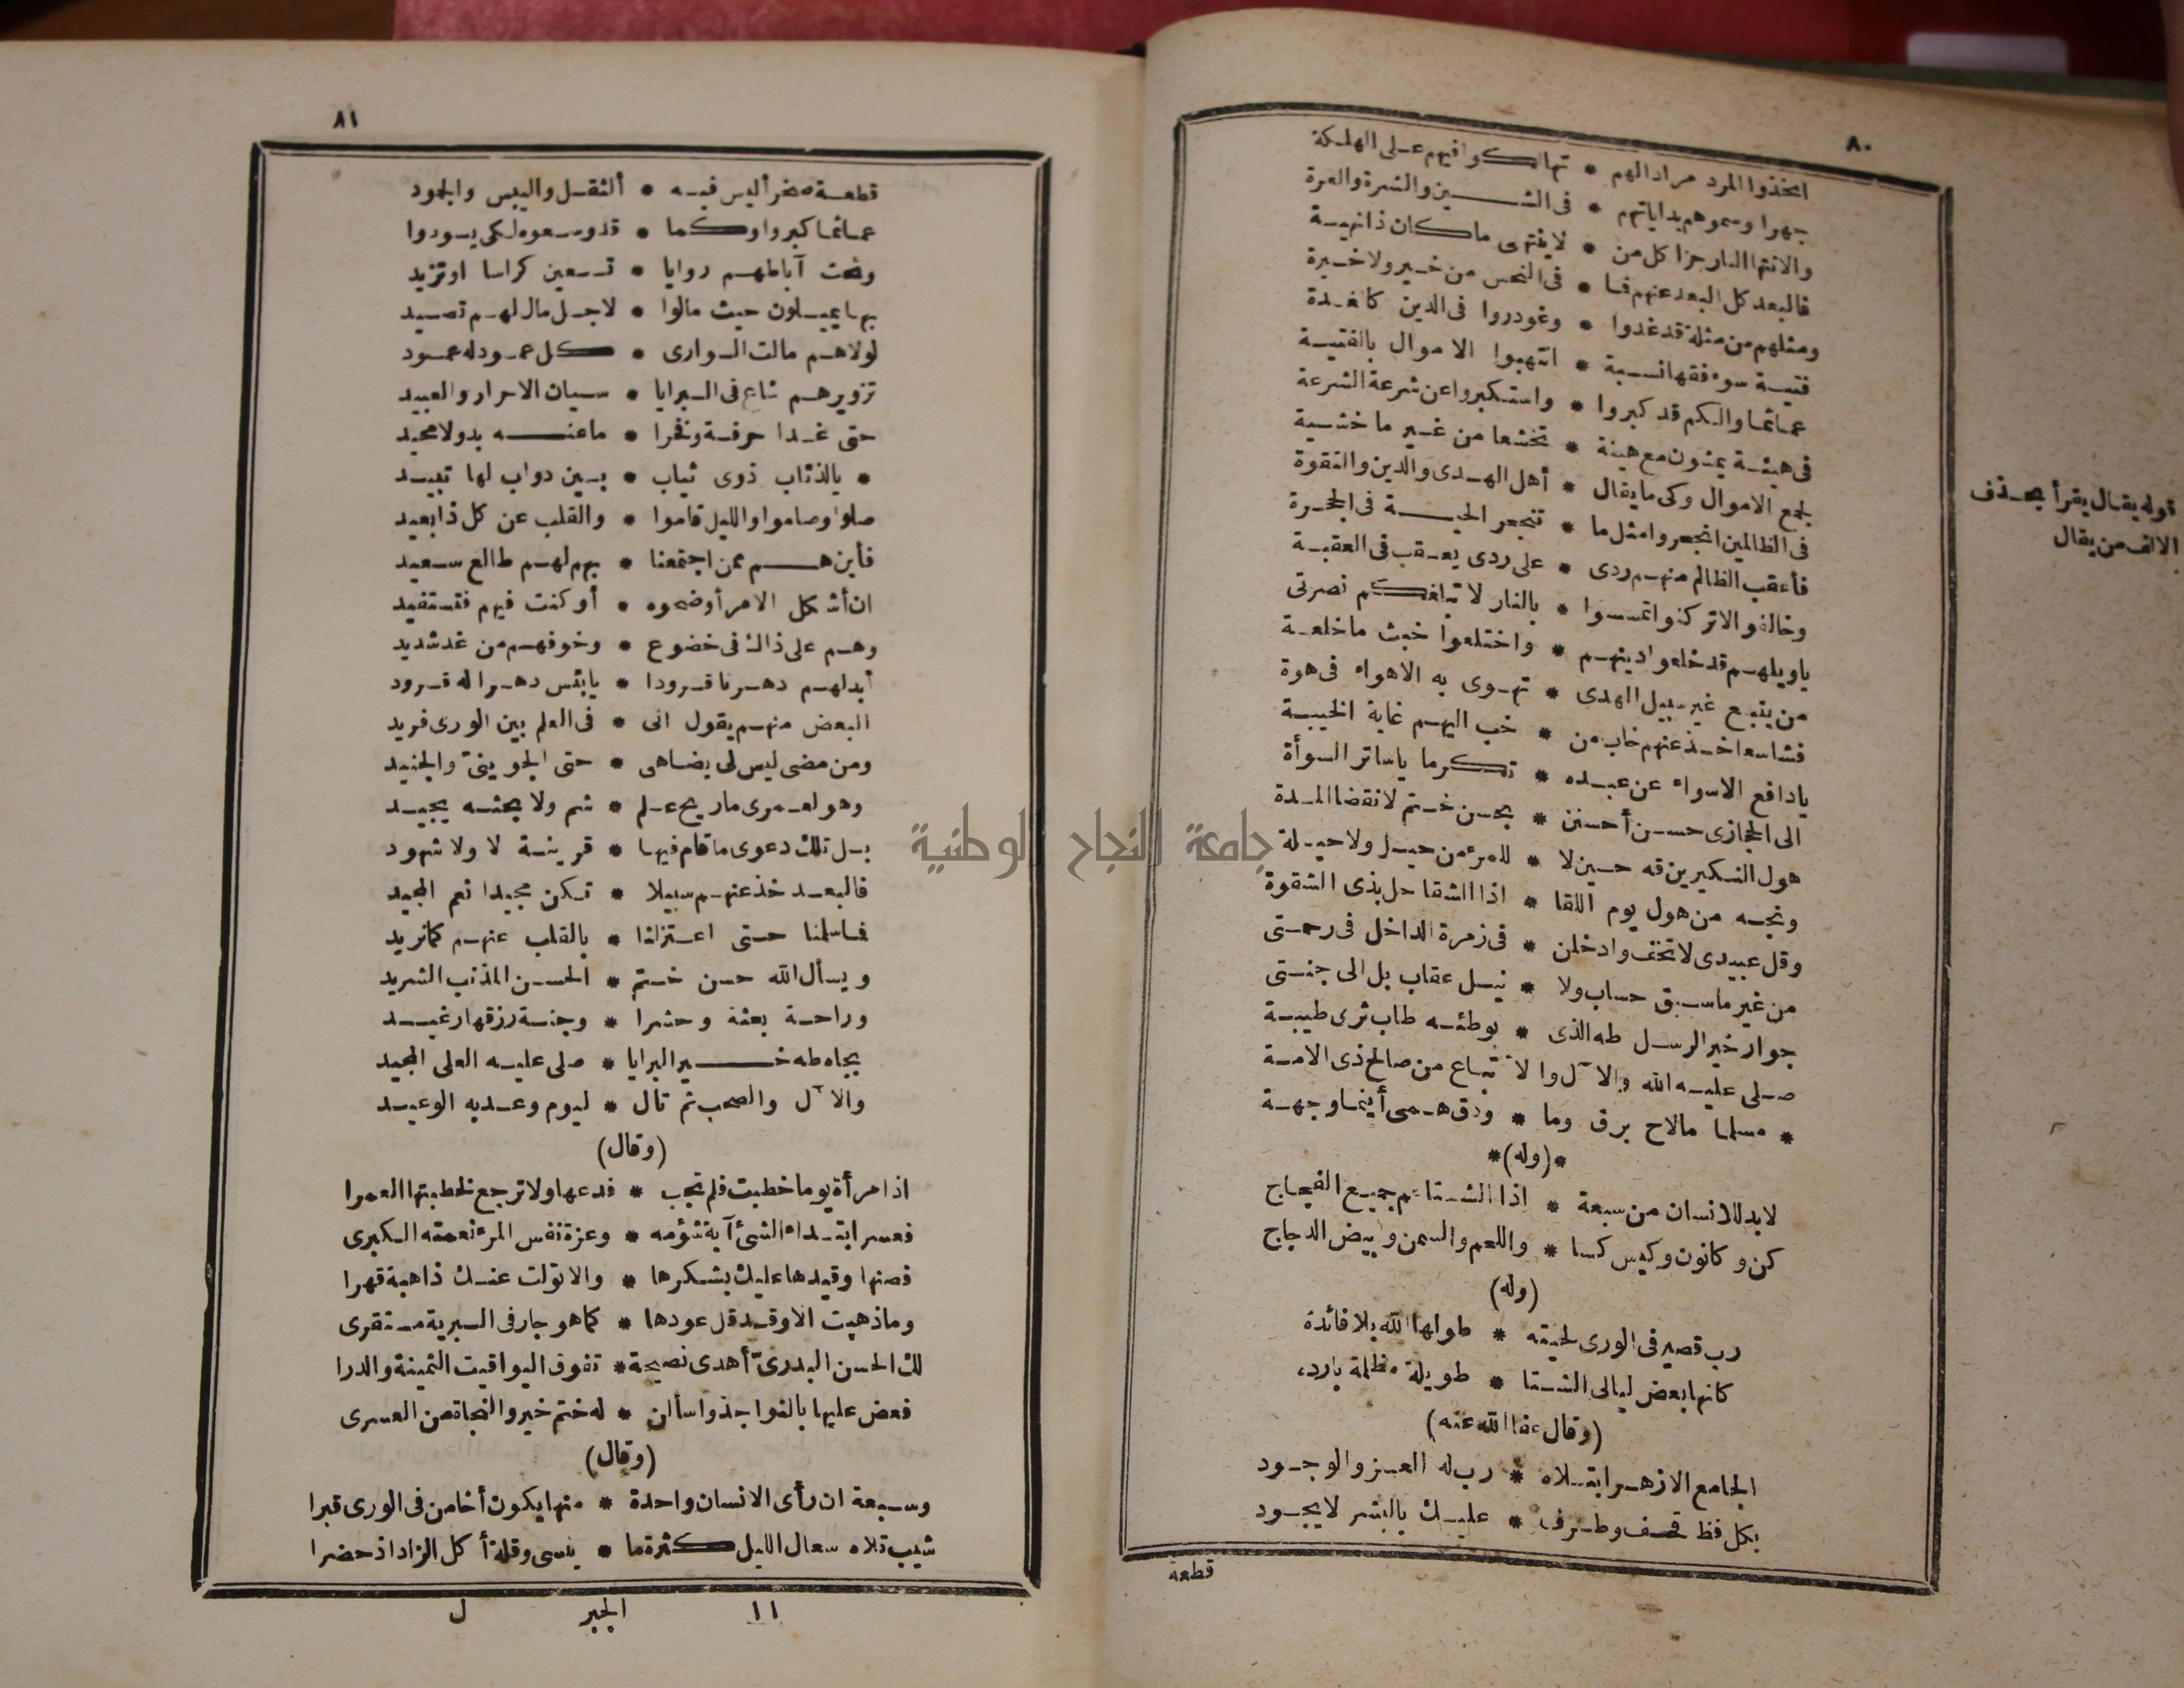 ٨٠
اتخذوا المرد مرادا لهم * تهالكوا فيهم على الهلكة
جهرا وسموهم بداياتهم * فى الشين والشرة والعرة
والانتها النار جزا كل من * لا ينتهى ما كان ذا نهية
فالبعد كل البعد عنهم فما * فى النحس من خير ولا خيرة
ومثلهم من مثلة قد غدوا * وغودروا فى الدين كالغدة
فتية سوء فقها نسبة * انتهبوا الاموال بالفتية
عمائما والكم قد كبروا * واستكبروا عن شرعة الشرعة
فى هيئة يمشون مع هينة * تخشعا من غير ما خشية
لجمع الاموال وكى ما يقال * أهل الهدى والدين والتقوة
فى الظالمين انجحروا مثل ما * تنجحر الحية فى الجحرة
فأعقب الظالم منهم ردى * على ردى يعقب فى العقبة
وخالفوا لا تركنوا تمسسوا * بالنار لا تبلغكم نصرتى
يا ويلهم قد خلعوا دينهم * واختلعوا خبث ما خلعة
من يتبع غير سبيل الهدى * تهوى به الاهواء فى هوة
فشاسعا خذ عنهم خاب من * خب اليهم غاية الخيبة
يا دافع الاسواء عن عبده * تكرما يا ساتر السوأة
الى الحجازى حسن أحسنن * بحسن ختم لانقضا المدة
هول النكيرين قه حين لا * للمرء من حيل ولا حيلة
ونجه من هول يوم اللقا * اذا الشقا حل بذى الشقوة
وقل عبيدى لا تخف وادخلن * فى زمرة الداخل فى رحمتى
من غير ما سبق حساب ولا * نيل عقاب بل الى جنتى
جوار خير الرسل طه الذى * بوطئه طاب ثرى طيبة
صلى عليه الله والآل والاتباع من صالح ذى الامة
* مسلما ما لاح برق وما * ودق همى أينما وجهة
*(وله)*
لا بد للانسان من سبعة * اذا الشتا عم جميع الفجاج
كن وكانون وكيس كسا * واللحم والسمن وبيض الدجاج
(وله)
رب قصير فى الورى لحيته * طولها الله بلا فائدة
كانها بعض ليالى الشتا * طويلة مظلمة بارده
(وقال عفا الله عنه)
الجامع الازهر ابتلاه * رب له العز والوجود
بكل فظ قحف وطرف * عليك بالبشر لا يجود
قطعة
قوله يقال يقرأ بحذف
الالف من يقال
٨١
قطعة صخر أليس فيه * ألثقل واليبس والجمود
عمائما كبروا وكما * قد وسعوه لكى يسودوا
وتحت آباطهم روايا * تسعين كراسا او تزيد
بها يميلون حيث مالوا * لاجل مال لهم تصيد
لولاهم مالت السوارى * كل عمود له عمود
تزويرهم شاع فى البرايا * سيان الاحرار والعبيد
حتى غدا حرفة وفخرا * ما عنه بد ولا محيد
* يا لذئاب ذوى ثياب * بين دواب لها تبيد
صلوا وصاموا والليل قاموا * والقلب عن كل ذا بعيد
فأين هم ممن اجتمعنا * بهم لهم طالع سعيد
ان أشكل الامر أوضحوه * أو كنت فيهم فتستفيد
وهم على ذاك فى خضوع * وخوفهم من غد شديد
أبدلهم دهرنا قرودا * يا بئس دهرا له قرود
البعض منهم يقول انى * فى العلم بين الورى فريد
ومن مضى ليس لى يضاهى * حتى الجوينىّ والجنيد
وهو لعمرى ما ريح علم * شم ولا بحثه يجيد
بل تلك دعوى ما قام فيها * قرينة لا ولا شهود
فالبعد خذ عنهم سبيلا * تكن مجيدا نعم المجيد
فما سلمنا حتى اعتزلنا * بالقلب عنهم كما نريد
ويسأل الله حسن ختم * الحسن المذنب الشريد
وراحة بعثة وحشرا * وجنة رزقها رغيد
بجاه طه خير البرايا * صلى عليه العلى المجيد
والآل والصحب ثم تال * ليوم وعد به الوعيد
(وقال)
اذا امرأة يوما خطبت فلم تجب * فدعها ولا ترجع لخطبتها العمرا
فعسر ابتداء الشئ آية شؤمه * وعزة نفس المرء نعمته الكبرى
فصنها وقيدها عليك بشكرها * والا تولت عنك ذاهبة قهرا
وما ذهبت الا وقد قل عودها * كما هو جار فى البرية مستقرى
لك الحسن البدرىّ أهدى نصيحة * تفوق اليواقيت الثمينة والدرا
فعض عليها بالنواجذ واسألن * له ختم خير والنجاة من العسرى
(وقال)
وسبعة ان رأى الانسان واحدة * منها يكون أخا من فى الورى قبرا
شيب تلاه سعال الليل كثرة ما * ينسى وقلة أكل الزاد اذ حضرا
١١ الجبر ل
جامعة النجاح الوطنية